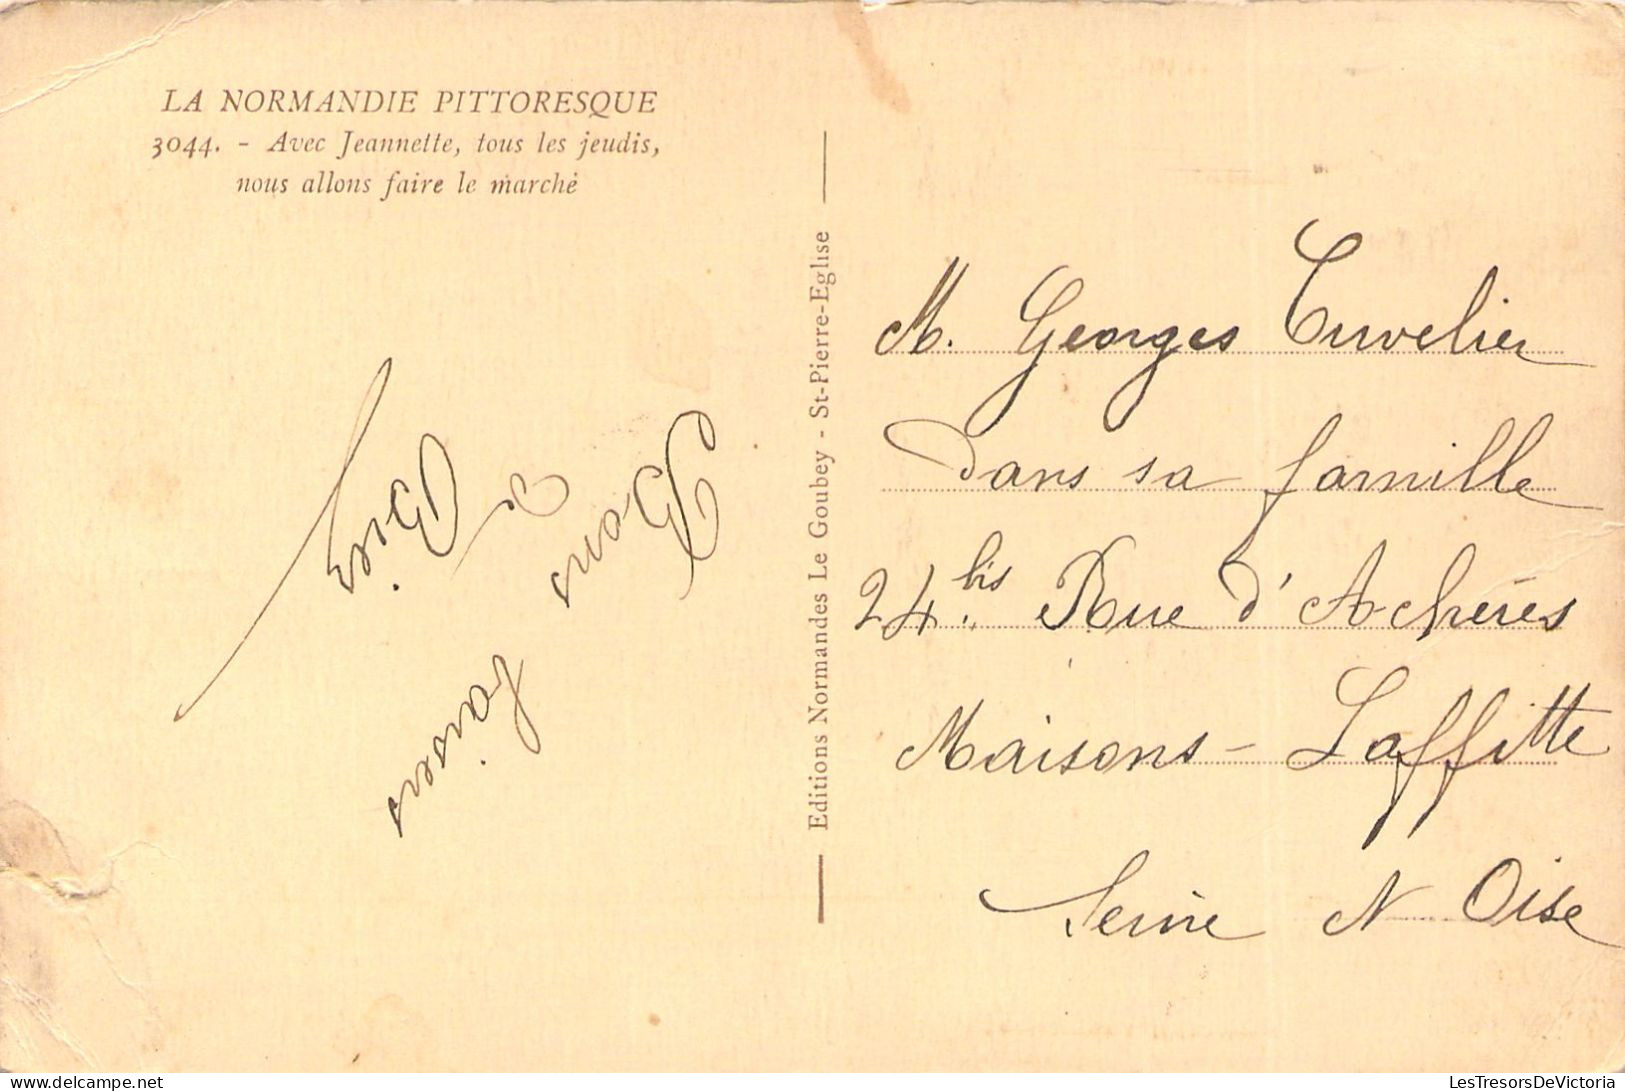 LA NORMANDIE PITTORESQUE
3044. - Avec Jeannette, tous les jeudis,
nous allons faire le marché
Bons baisers
de
Editions Normandes Le Goubey - St-Pierre-Eglise
M. Georges Cuvelier
Dans sa famille
24 bis Rue d'Achères
Maisons-Laffitte
Seine & Oise
LesTresorsDeVictoria